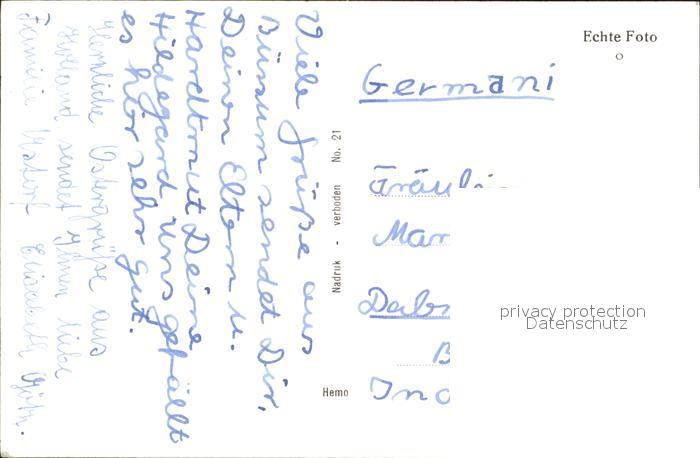 Viele Grüße aus
Büsum sendet Dir,
Deinen Eltern u.
Hardtmut Deine
Hildegard Uns gefällt
es hier sehr gut.
Herzliche Ostergrüße aus
Holland sendet Ihnen liebe
Familie Elisabeth
Nadruk - verboden No. 21
Hemo
Echte Foto
Germani
Fräul
Mar
Dab
B
privacy protection
Datenschutz